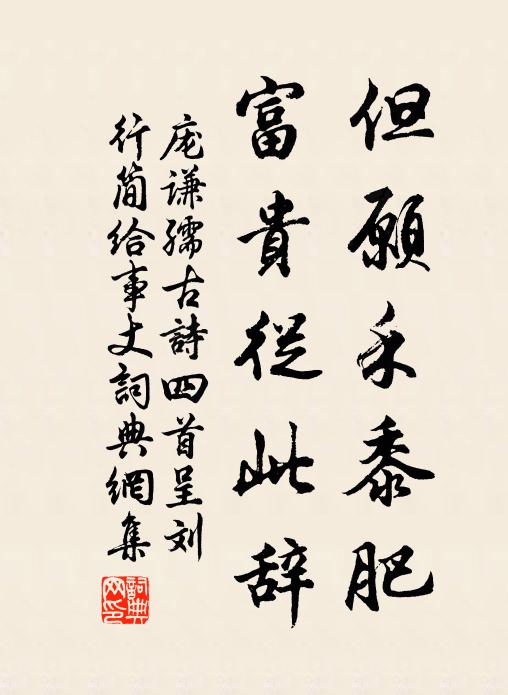 但願禾黍肥
富貴從此辞
庞谦孺古詩四首呈刘
行简给事丈詞典網集
詞典網印